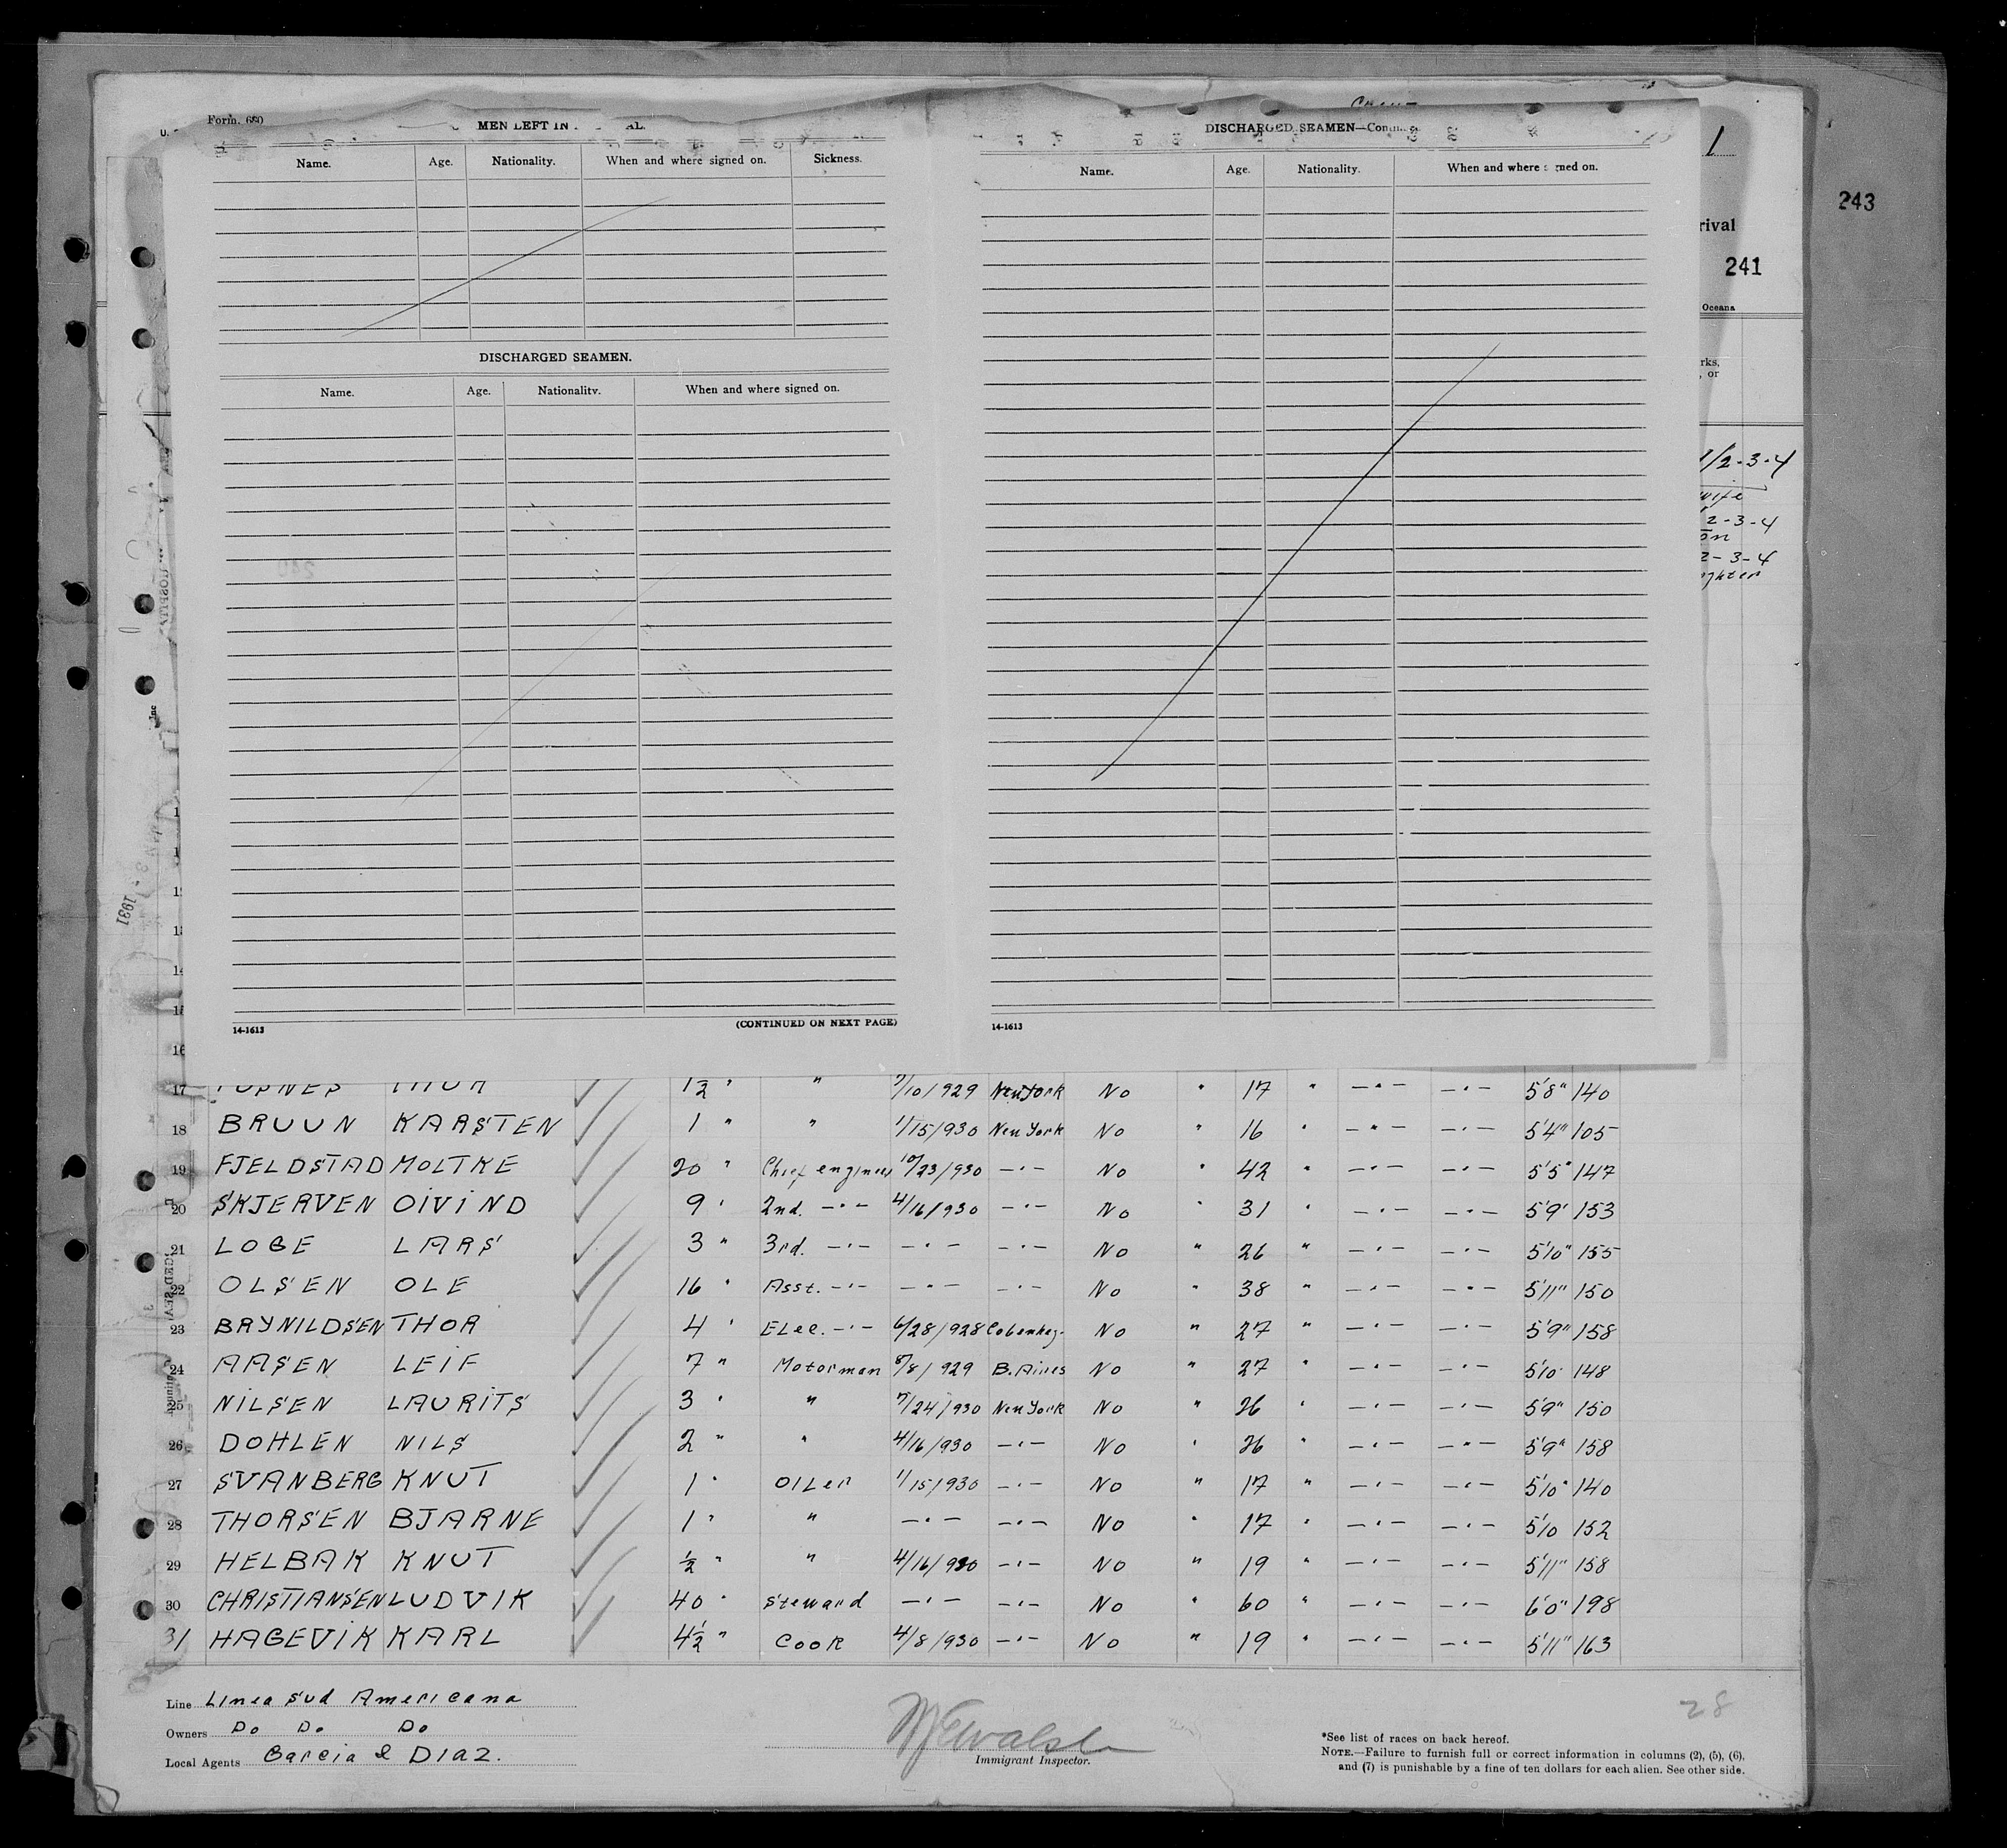 Form. 680
MEN LEFT IN
Name. Age. Nationality. When and where signed on. Sickness.
DISCHARGED SEAMEN.
Name. Age. Nationality. When and where signed on.
14-1613 (CONTINUED ON NEXT PAGE)
DISCHARGED SEAMEN—Con
Name. Age. Nationality. When and where signed on.
14-1613
1
243
rival
241
Oceana
rks,
, or
1/2-3-4
wife
2-3-4
2-3-4
1931
16
17 1½ " " 7/10/929 New York No " 17 " —"— —"— 5'8" 140
18 BRUUN KARSTEN 1 " " 1/15/930 New York No " 16 " —"— —"— 5'4" 105
19 FJELDSTAD MOLTKE 20 " Chief engineer 10/23/930 —"— No " 42 " —"— —"— 5'5" 147
20 SKJERVEN OIVIND 9 " 2nd. —"— 4/16/930 —"— No " 31 " —"— —"— 5'9" 153
21 LOGE LARS 3 " 3rd. —"— —"— —"— No " 26 " —"— —"— 5'10" 155
22 OLSEN OLE 16 " Asst. —"— —"— —"— No " 38 " —"— —"— 5'11" 150
23 BRYNILDSEN THOR 4 " Elec. —"— 6/28/928 Cobenhag. No " 27 " —"— —"— 5'9" 158
24 AASEN LEIF 7 " Motorman 8/8/929 B. Aires No " 27 " —"— —"— 5'10" 148
25 NILSEN LAURITS 3 " " 7/24/930 New York No " 26 " —"— —"— 5'9" 150
26 DOHLEN NILS 2 " " 4/16/930 —"— No " 26 " —"— —"— 5'9" 158
27 SVANBERG KNUT 1 " Oiler 1/15/930 —"— No " 17 " —"— —"— 5'10" 140
28 THORSEN BJARNE 1 " " —"— —"— No " 17 " —"— —"— 5'10 152
29 HELBAK KNUT ½ " " 4/16/930 —"— No " 19 " —"— —"— 5'11" 158
30 CHRISTIANSEN LUDVIK 40 " Steward —"— —"— No " 60 " —"— —"— 6'0" 198
31 HAGEVIK KARL 4½ " Cook 4/8/930 —"— No " 19 " —"— —"— 5'11" 163
Line Linea Sud Americana
Owners Do Do Do
Local Agents Garcia & Diaz.
Immigrant Inspector.
28
*See list of races on back hereof.
NOTE.—Failure to furnish full or correct information in columns (2), (5), (6),
and (7) is punishable by a fine of ten dollars for each alien. See other side.